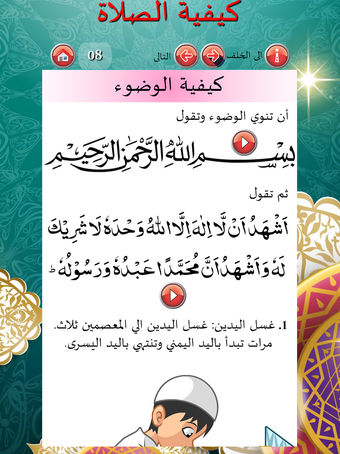 كيفية الصلاة
08 التالى الى الخلف
كيفية الوضوء
أن تنوي الوضوء وتقول
بِسْمِ اللهِ الرَّحْمٰنِ الرَّحِيْمِ
ثم تقول
اَشْهَدُ اَنْ لَّا اِلٰهَ اِلَّا اللهُ وَحْدَهٗ لَا شَرِيْكَ
لَهٗ وَ اَشْهَدُ اَنَّ مُحَمَّدًا عَبْدُهٗ وَ رَسُوْلُهٗ ؕ
1. غسل اليدين: غسل اليدين الي المعصمين ثلاث.
مرات تبدأ باليد اليمني وتنتهي باليد اليسرى.